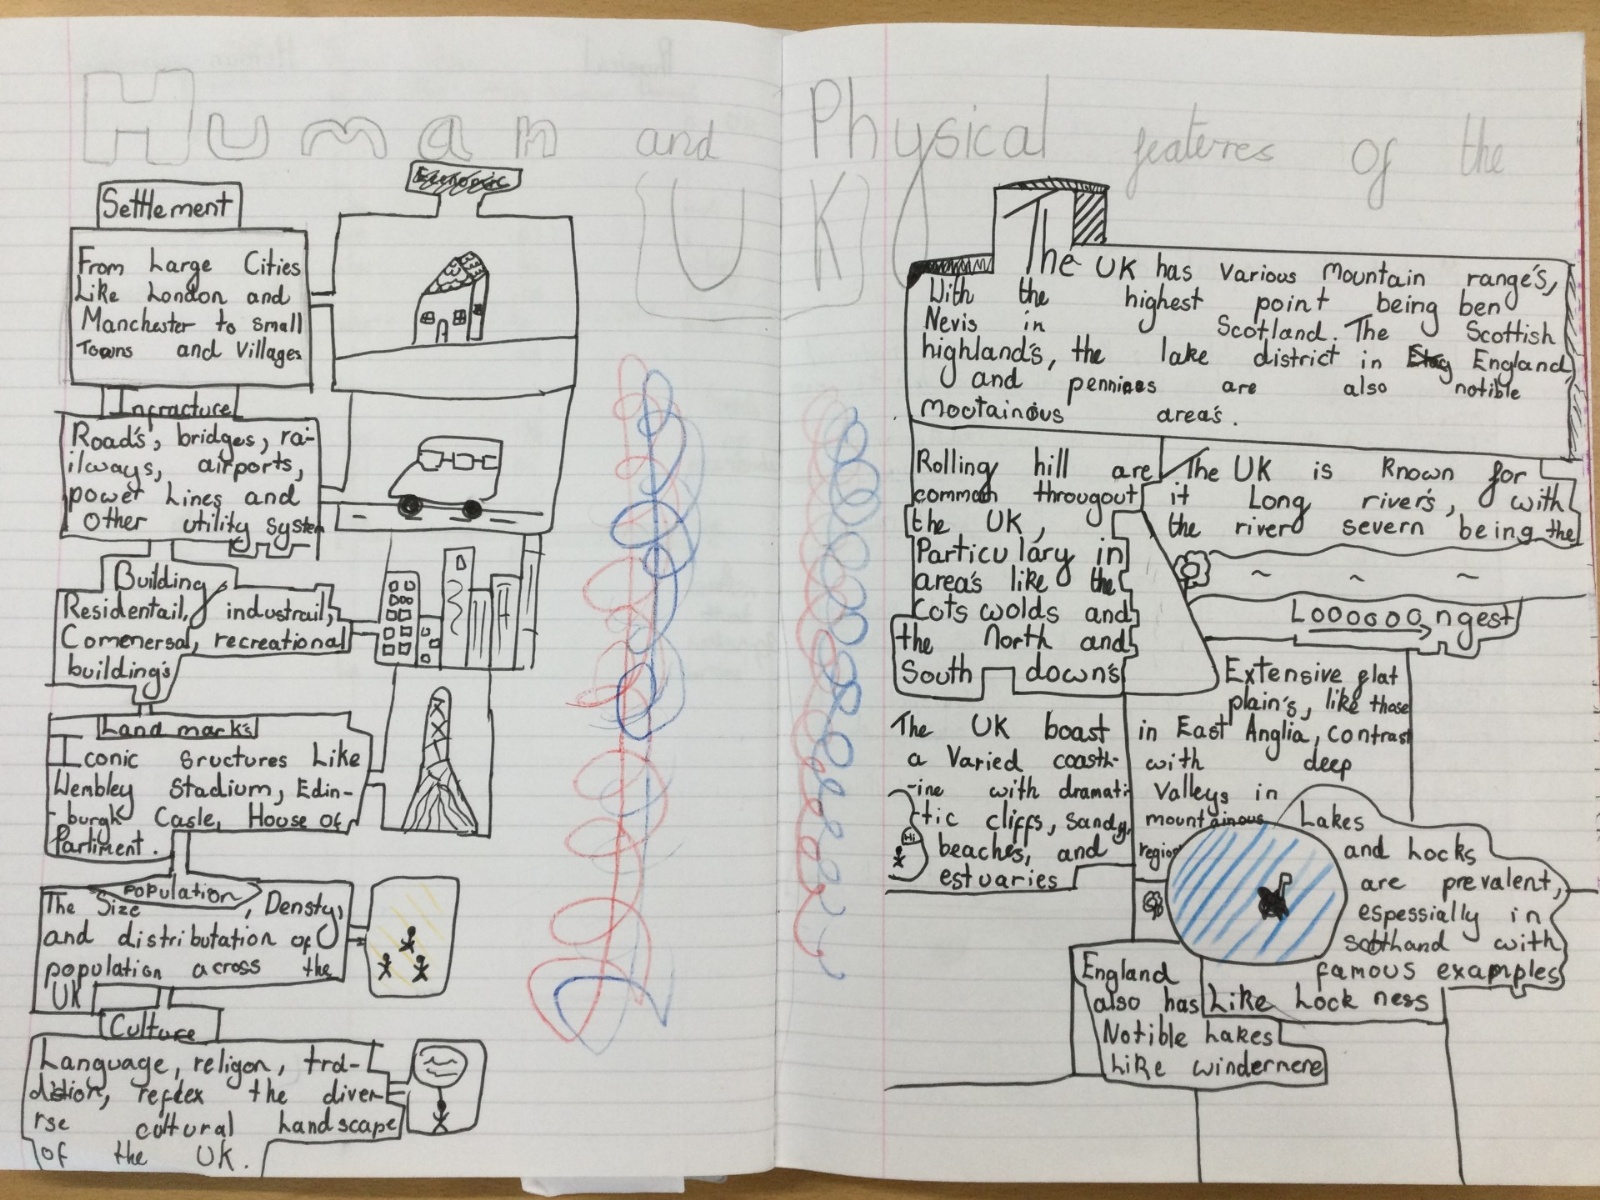 Human and Physical features of the
UK
Settlement
From Large Cities
Like London and
Manchester to small
Towns and Villages
Infracture
Road's, bridges, ra-
ilways, airports,
power Lines and
Other utility system
Building
Residentail, industrail,
Comenersal, recreational
building's
Land mark's
Iconic sructures Like
Wembley Stadium, Edin-
-burgh Casle, House of
Parliment.
Population
The Size, Densty,
and distributation of
population across the
UK
Culture
Language, religon, trd-
distion, reflex the diver-
rse cultural landscape
of the UK.
The UK has various mountain range's,
With the highest point being ben
Nevis in Scotland. The Scottish
highland's, the lake district in England,
and pennines are also notible
mootainous area's.
Rolling hill are
common througout
the UK,
Particulary in
area's like the
Cotswolds and
the North and
South down's
The UK is known for
it Long river's, with
the river severn being the
Looooooongest
The UK boast
a Varied coastl-
-ine with dramati-
-tic cliffs, sandy,
beaches, and
estuaries
Hi
Extensive flat
plain's, like those
in East Anglia, contrast
with deep
Valleys in
mountainous
region
Lakes
and Locks
are prevalent,
espessially in
scotthand with
famous examples
Like Lock ness
England
also has
Notible Lakes
Like windermere